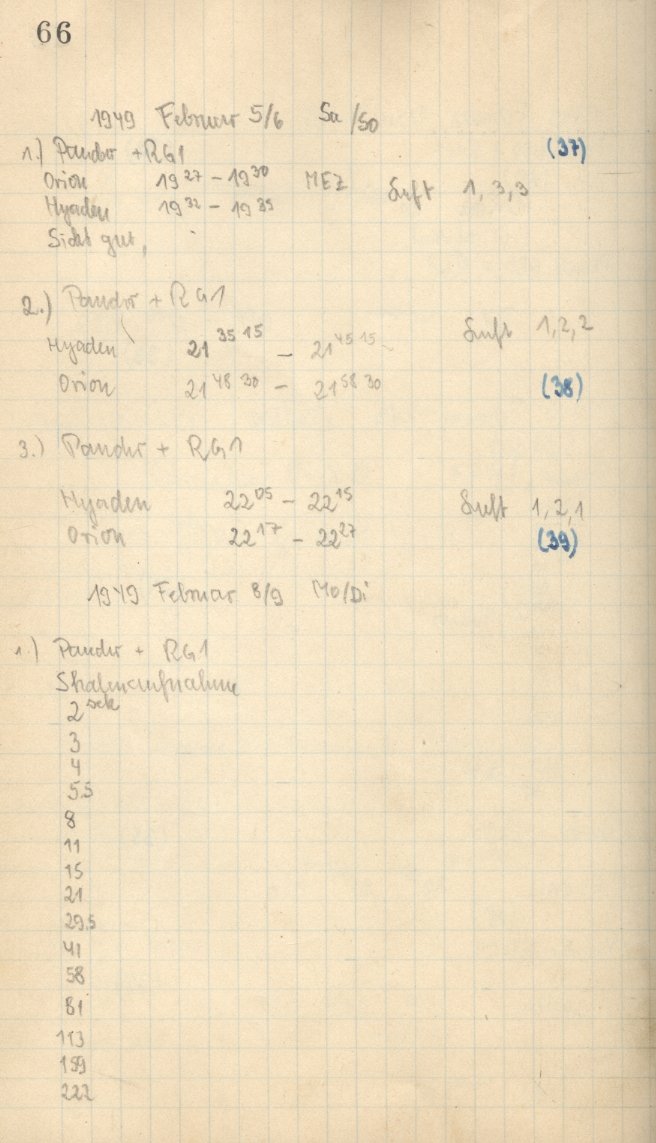 66
1949 Februar 5/6 Sa/So
1.) Panchr + RG1 (37)
Orion 19 27 – 19 30 MEZ Luft 1, 3, 3
Hyaden 19 32 – 19 35
Sicht gut,
2.) Panchr + RG1
Luft 1, 2, 2
Hyaden 21 35 15 – 21 45 15
Orion 21 48 30 – 21 58 30 (38)
3.) Panchr + RG1
Hyaden 22 05 – 22 15 Luft 1, 2, 1
Orion 22 17 – 22 27 (39)
1949 Februar 8/9 Mo/Di
1.) Panchr + RG1
Skalenaufnahme
2 sek
3
4
5.5
8
11
15
21
29.5
41
58
81
113
159
222